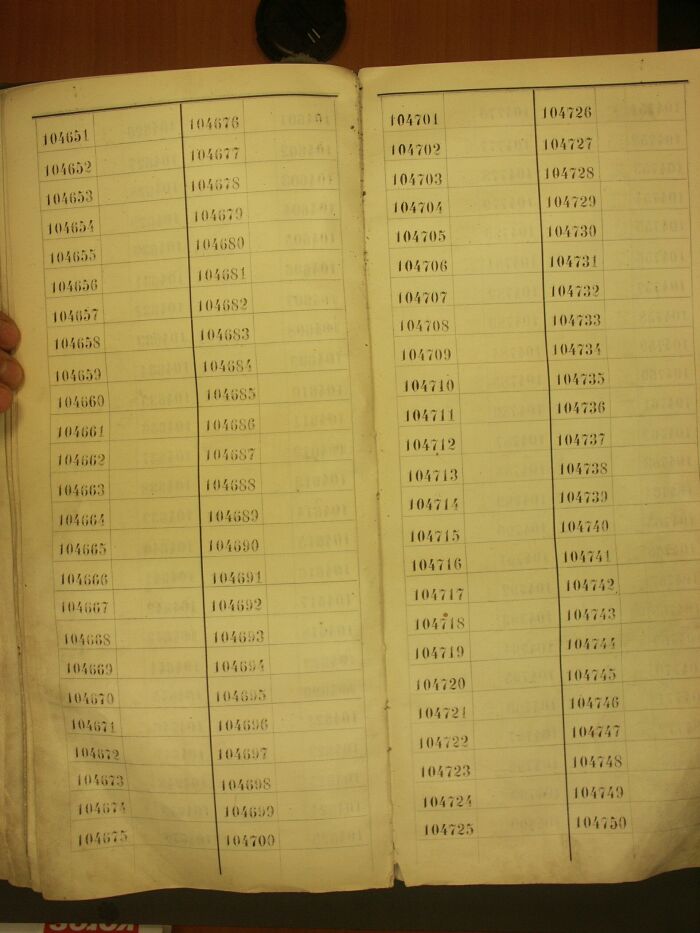 104651
104652
104653
104654
104655
104656
104657
104658
104659
104660
104661
104662
104663
104664
104665
104666
104667
104668
104669
104670
104671
104672
104673
104674
104675
104676
104677
104678
104679
104680
104681
104682
104683
104684
104685
104686
104687
104688
104689
104690
104691
104692
104693
104694
104695
104696
104697
104698
104699
104700
104701
104702
104703
104704
104705
104706
104707
104708
104709
104710
104711
104712
104713
104714
104715
104716
104717
104718
104719
104720
104721
104722
104723
104724
104725
104726
104727
104728
104729
104730
104731
104732
104733
104734
104735
104736
104737
104738
104739
104740
104741
104742
104743
104744
104745
104746
104747
104748
104749
104750